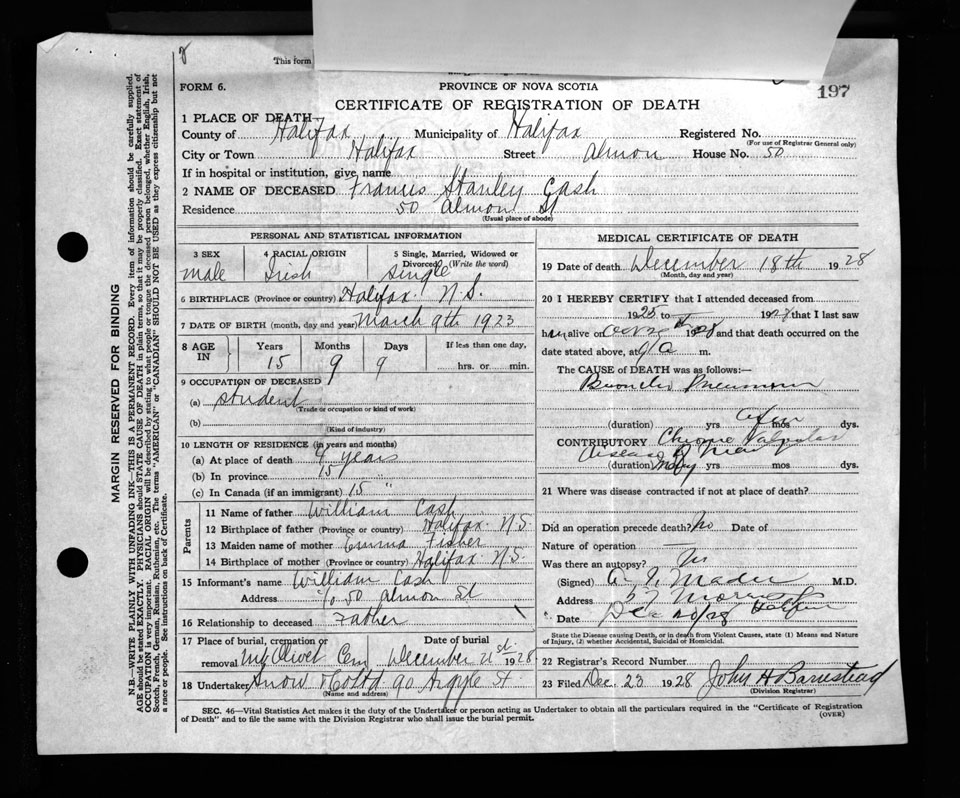 8
This form
197
FORM 6.
PROVINCE OF NOVA SCOTIA
CERTIFICATE OF REGISTRATION OF DEATH
1 PLACE OF DEATH
County of Halifax Municipality of Halifax Registered No.
(For use of Registrar General only)
City or Town Halifax Street Almon House No. 50
If in hospital or institution, give name
2 NAME OF DECEASED Francis Stanley Cash
Residence 50 Almon St
(Usual place of abode)
PERSONAL AND STATISTICAL INFORMATION
3 SEX 4 RACIAL ORIGIN 5 Single, Married, Widowed or Divorced (Write the word)
male Irish Single
6 BIRTHPLACE (Province or country) Halifax N.S.
7 DATE OF BIRTH (month, day and year) March 9th 1923
8 AGE IN Years Months Days If less than one day,
15 9 9 hrs. or min.
9 OCCUPATION OF DECEASED
(a) student
(Trade or occupation or kind of work)
(b)
(Kind of industry)
10 LENGTH OF RESIDENCE (in years and months)
(a) At place of death 9 years
(b) In province 15
(c) In Canada (if an immigrant) 15 "
Parents
11 Name of father William Cash
12 Birthplace of father (Province or country) Halifax N.S.
13 Maiden name of mother Emma Fisher
14 Birthplace of mother (Province or country) Halifax N.S.
15 Informant's name William Cash
Address c/o 50 Almon St
16 Relationship to deceased Father
17 Place of burial, cremation or removal Mt Olivet Cem Date of burial December 21st 1928
18 Undertaker Snow & Co Ltd 90 Argyle St.
(Name and address)
MEDICAL CERTIFICATE OF DEATH
19 Date of death December 18th 1928
(Month, day and year)
20 I HEREBY CERTIFY that I attended deceased from
19 to 1928 that I last saw
him alive on 1928 and that death occurred on the
date stated above, at m.
The CAUSE OF DEATH was as follows:—
Broncho Pneumonia
(duration) yrs mos dys.
CONTRIBUTORY Chronic Valvular
disease of Heart
(duration) Many yrs mos dys.
21 Where was disease contracted if not at place of death?
Did an operation precede death? No Date of
Nature of operation —
Was there an autopsy? No
(Signed) Mader M.D.
Address 57 Morris St
Halifax
Date Dec 20/28
State the Disease causing Death, or in death from Violent Causes, state (1) Means and Nature of Injury, (2) whether Accidental, Suicidal or Homicidal.
22 Registrar's Record Number
23 Filed Dec. 23 1928 John H Barnstead
(Division Registrar)
SEC. 46—Vital Statistics Act makes it the duty of the Undertaker or person acting as Undertaker to obtain all the particulars required in the "Certificate of Registration
of Death" and to file the same with the Division Registrar who shall issue the burial permit.
(OVER)
MARGIN RESERVED FOR BINDING
N.B.—WRITE PLAINLY WITH UNFADING INK—THIS IS A PERMANENT RECORD. Every item of information should be carefully supplied.
AGE should be stated EXACTLY. PHYSICIANS should STATE CAUSE OF DEATH in plain terms, so that it may be properly classified. Exact statement of
OCCUPATION is very important. RACIAL ORIGIN will be described by stating to what people or tongue the deceased person belonged, whether English, Irish,
Scotch, French, German, Russian, Ruthenian, etc. The terms "AMERICAN" or "CANADIAN" SHOULD NOT BE USED as they express citizenship but not
a race or people. See instructions on back of Certificate.